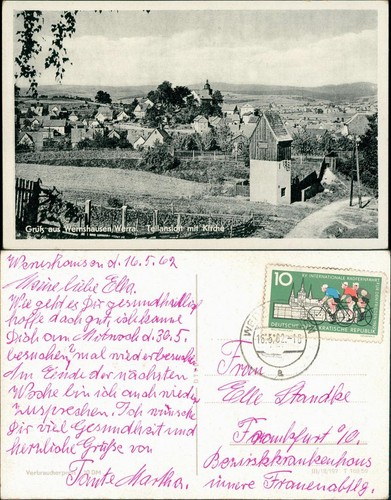 Gruß aus Wernshausen/Werra. Teilansicht mit Kirche
Wernshausen d. 16.5.62
Meine liebe Ella.
Wie geht es Dir gesundheitlich
hoffe doch gut, ich kann
Dich am Mittwoch d. 30.5.
besuchen, mal wieder besuchen.
Am Ende der nächsten
Woche bin ich auch wieder
zusprechen. Ich wünsche
Dir viel Gesundheit und
herzliche Grüße von
Tante Martha.
Verbraucherpreis 0,20 DM
10
XV. INTERNATIONALE RADFERNFAHRT
DEUTSCHE DEMOKRATISCHE REPUBLIK
16.5.62.-18
a
Frau
Elle Standke
Frankfurt/O.
Bezirkskrankenhaus
innere Frauenabtlg.